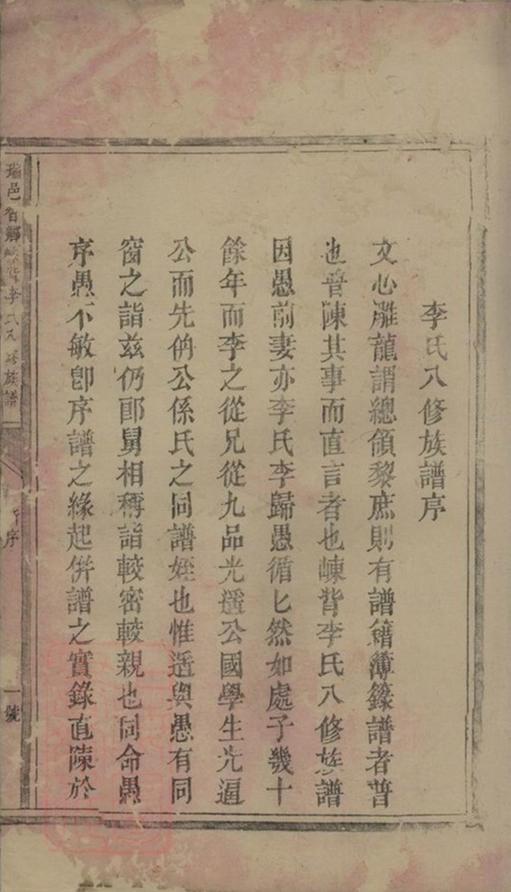 李氏八修族譜序
文心雕龍謂總領黎庶則有譜籍薄錄譜者普
也普陳其事而直言者也崠背李氏八修族譜
因愚前妻亦李氏李歸愚循匕然如處子幾十
餘年而李之從兄從九品光遥公國學生光逼
公而先俏公係氏之同譜姪也惟遥與愚有同
窗之誼兹仍郎舅相稱誼較密較親也同命愚
序愚不敏卽序譜之緣起併譜之實錄直陳於
瑞邑 鄉崠背李氏八修族譜
序
一號